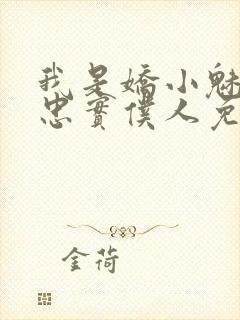 我是嬌小魅
忠實僕人兔
金荷